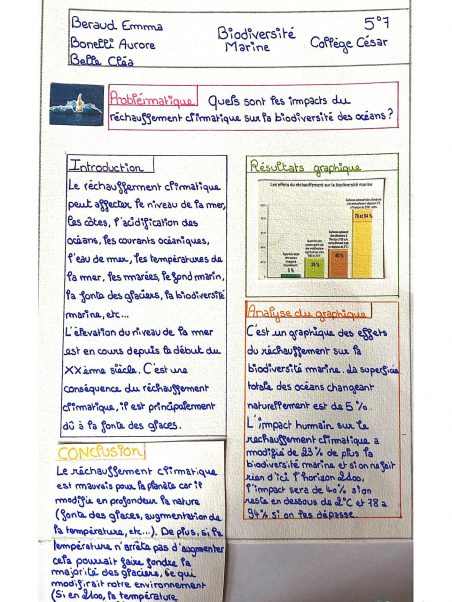 Beraud Emmma
Bonelli Aurore
Belle Cléa
Biodiversité
Marine
5°7
Collège César
Problématique Quels sont les impacts du
réchauffement climatique sur la biodiversité des océans ?
Introduction
Le réchauffement climatique
peut affecter, le niveau de la mer,
les côtes, l'acidification des
océans, les courants océaniques,
l'eau de mer, les températures de
la mer, les marées, le fond marin,
la fonte des glaciers, la biodiversité
marine, etc...
L'élévation du niveau de la mer
est en cours depuis le début du
XXème siècle. C'est une
conséquence du réchauffement
climatique, il est principalement
dû à la fonte des glaces.
Résultats graphique
Les effets du réchauffement sur la biodiversité marine
5 %
28 %
40 %
78 et 94 %
Analyse du graphique
C'est un graphique des effets
du réchauffement sur la
biodiversité marine. La superficie
totale des océans changeant
naturellement est de 5 %.
L'impact humain sur le
réchauffement climatique a
modifié de 23 % de plus la
biodiversité marine et si on ne fait
rien d'ici l'horizon 2100,
l'impact sera de 40% si on
reste en dessous de 2°C et 78 à
94% si on les dépasse
CONCLUSION
Le réchauffement climatique
est mauvais pour la planète car il
modifie en profondeur la nature
(fonte des glaces, augmentation de
la température, etc...). De plus, si la
température n'arrête pas d'augmenter
cela pourrait faire fondre la
majorité des glaciers, ce qui
modifirait notre environnement
(Si en 2100, la température